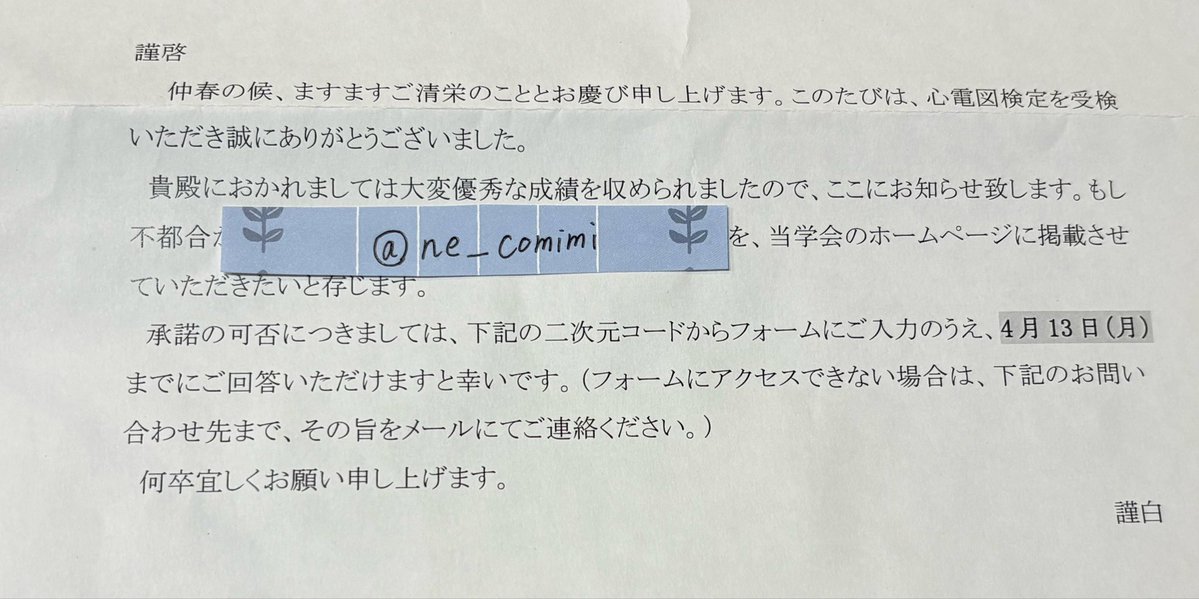 謹啓
仲春の候、ますますご清栄のこととお慶び申し上げます。このたびは、心電図検定を受検
いただき誠にありがとうございました。
貴殿におかれましては大変優秀な成績を収められましたので、ここにお知らせ致します。もし
不都合が @ne_comimi を、当学会のホームページに掲載させ
ていただきたいと存じます。
承諾の可否につきましては、下記の二次元コードからフォームにご入力のうえ、4月13日(月)
までにご回答いただけますと幸いです。(フォームにアクセスできない場合は、下記のお問い
合わせ先まで、その旨をメールにてご連絡ください。)
何卒宜しくお願い申し上げます。
謹白